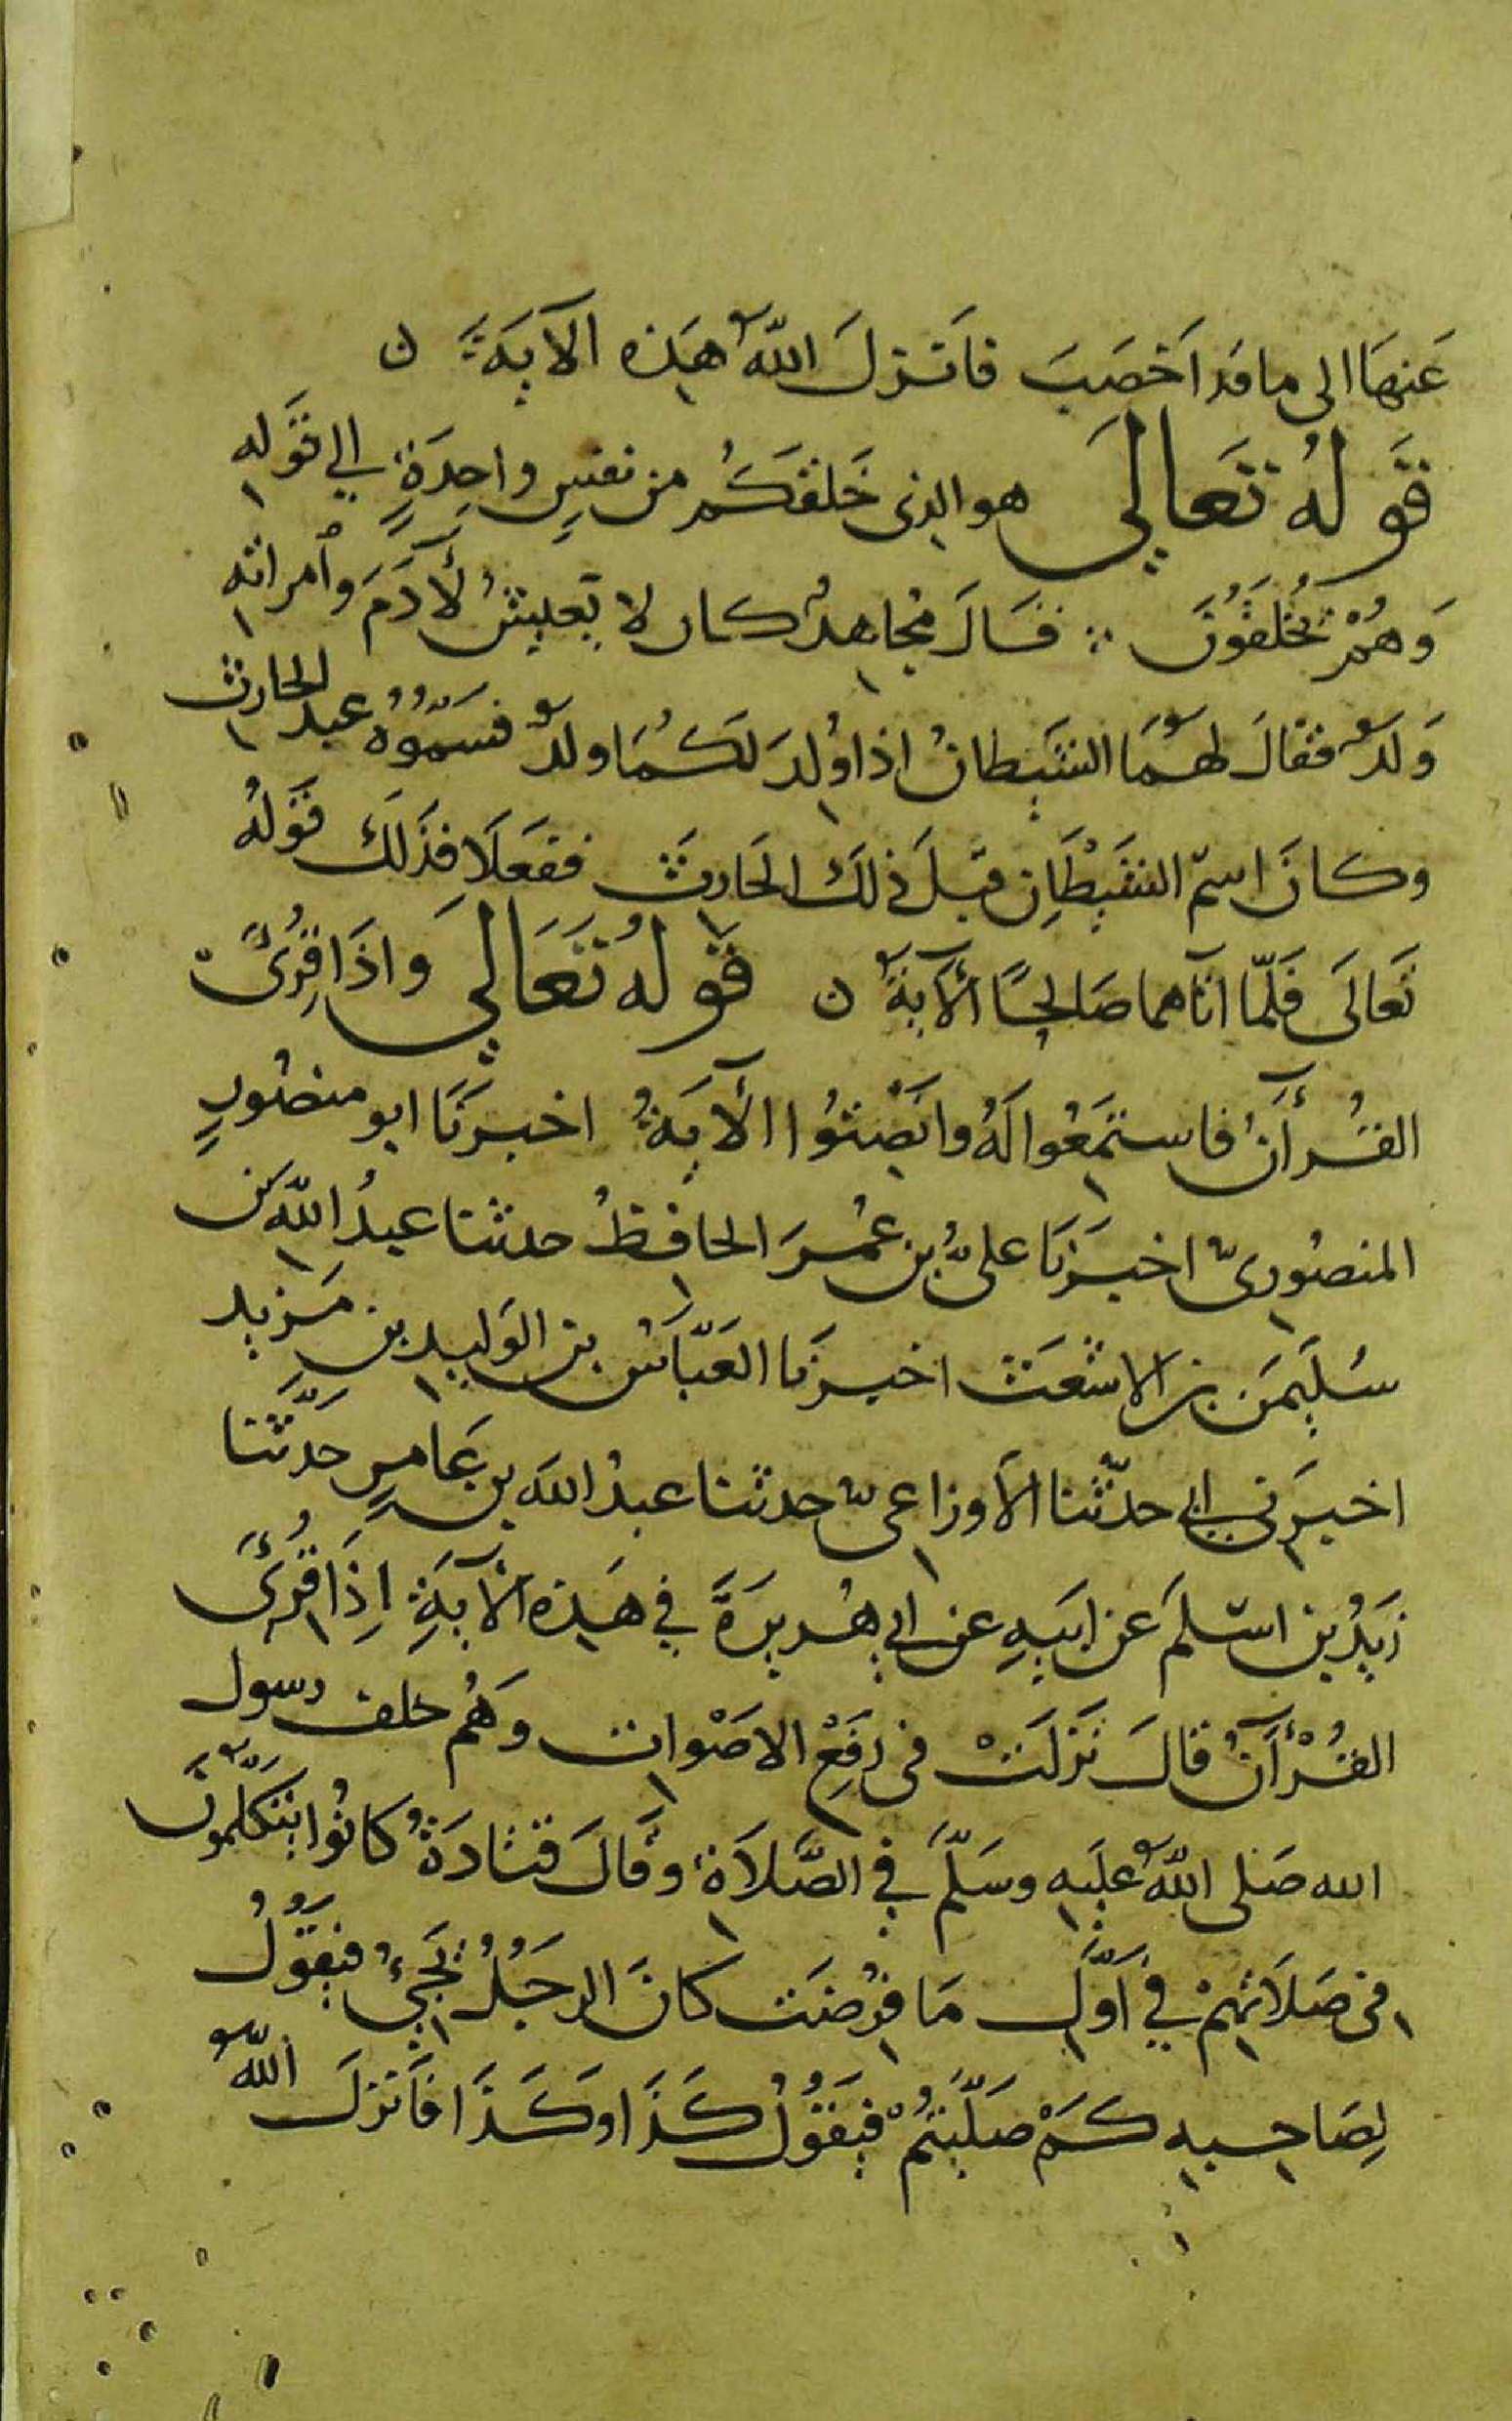 عَنهَا الى ما قد اَخصَبَ فاَنزلَ اللّهُ هَذه الآيَةَ ن
قَولهُ تَعالىَ هو الذى خَلقكُم من نفسٍ واحِدَةٍ الى قَوله
وَهُمْ يُخلَقُونَ قالَ مُجاهدٌ كان لا يَعيشُ لأَدَمَ وامراته
وَلدٌ فقالَ لهُمَا الشَيطانُ اذا وُلدَ لكُمَا ولدٌ فسَمّوُهُ عبد الحارث
وكانَ اسمُ الشَيْطَانِ قبلَ ذلكَ الحَارثَ ففعَلَا فذَلكَ قَولهُ
تَعَالَى فَلَمّا اتَاهما صَالحًا الأَيةَ ن قَولهُ تَعَالى وَاذَا قُرِئَ
القُرأَنُ فاستَمِعُوا لَهُ وانصِتُوا الآيَةُ اخبرَنَا ابو منصُورٍ
المنصُورىّ اخبَرَنَا علىُّ بن عُمرَ الحافظُ حدثنا عبدُ اللّه بن
سُليمَن بن الاشعَث اخبرَنا العَبَّاسُ بن الوَليد بن مَزيد
اخبرَنى ابى حدّثنا الاَوزاعىّ حدثنا عبدُ الله بن عَامرٍ حَدَّثنا
زَيدُ بن اسلَمَ عَن ابيَهِ عن ابى هُريرَةَ في هَذه الآيَةِ اِذَا قُرِئَ
القُرْأنُ قالَ نَزلَتْ فى رَفعِ الاصْوات وَهُم خلف رسول
الله صَلى اللّهُ عليَه وسَلّمَ في الصَّلاَة وقَالَ قتادَةُ كانُوا يتَكَلّمُونَ
فى صَلاَتهمْ في اَوّلِ مَا فُرضَت كانَ الرجُلُ يَجىءُ فيَقُولُ
لِصَاحبه كمْ صَلّيتُمْ فيَقُولُ كَذَا وكَذَا فاَنزلَ اللّهُ